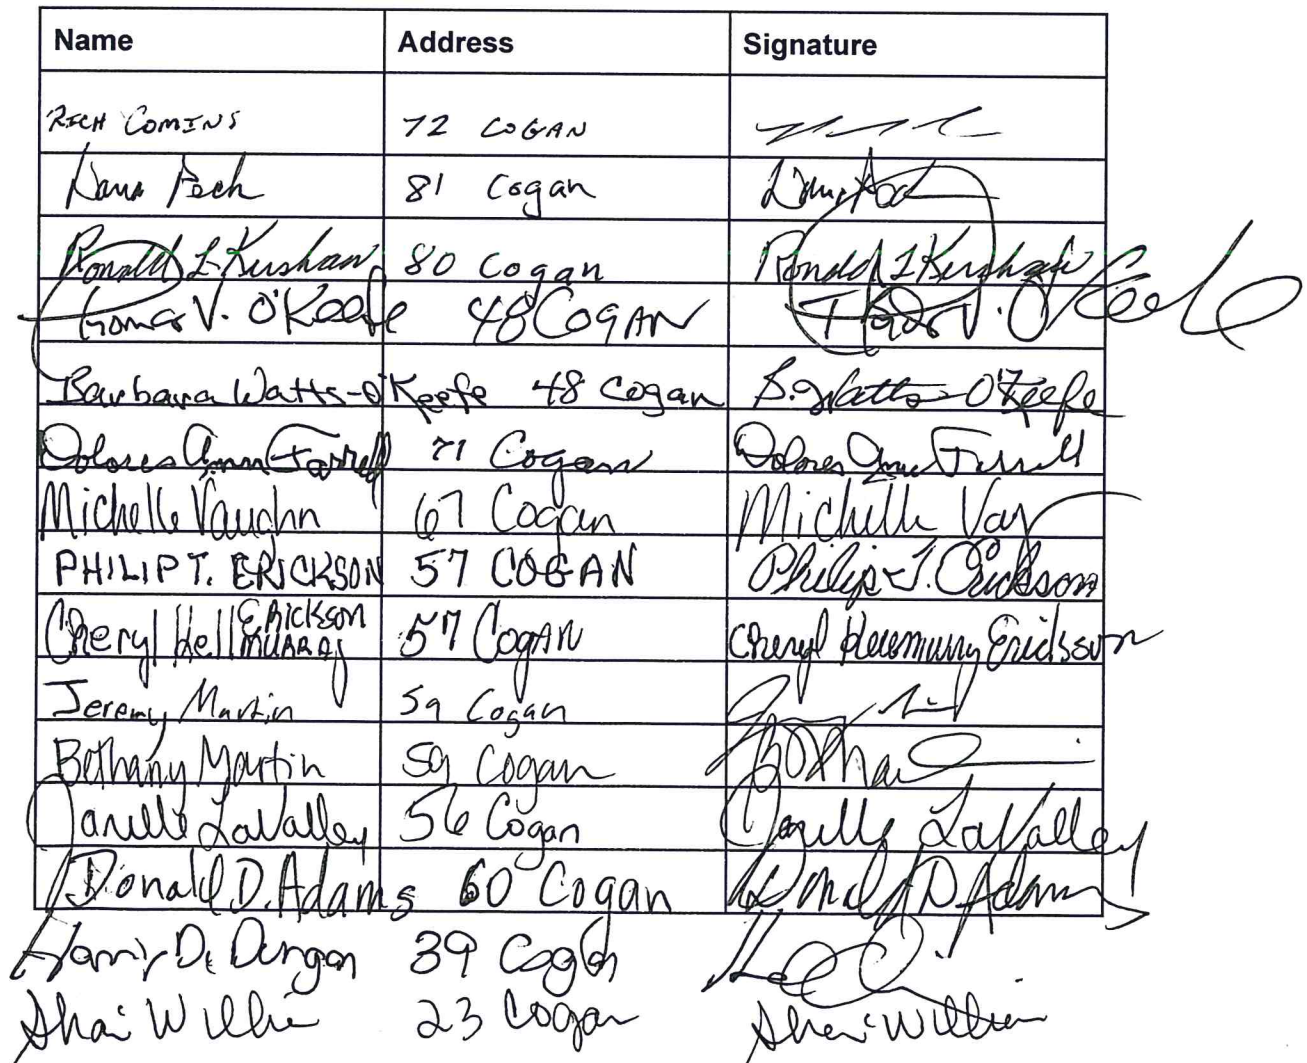 Name Address Signature
RICH COMINS 72 COGAN
Dana Pech 81 Cogan
Ronald L Kershaw 80 Cogan Ronald L Kershaw
Thomas V. O'Keefe 48 COGAN Thomas V. O'Keefe
Barbara Watts-O'Keefe 48 Cogan B. Watts-O'Keefe
Dolores Ann Farrell 71 Cogan Dolores Ann Farrell
Michelle Vaughn 67 Cogan Michelle
PHILIP T. ERICKSON 57 COGAN Philip T. Erickson
Cheryl Hellmurray Erickson 57 Cogan Cheryl Erickson
Jeremy Martin 59 Cogan
Bethany Martin 59 Cogan
Janelle LaValley 56 Cogan Janelle LaValley
Donald D. Adams 60 Cogan Donald D Adams
D. Dungan 39 Cogan
23 Cogan